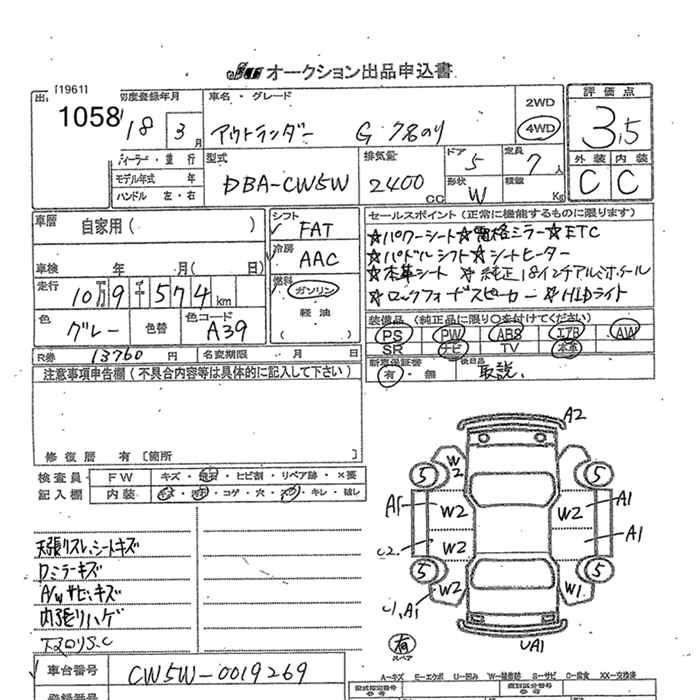 JUオークション出品申込書
[1961]
1058
初度登録年月 車名・グレード 2WD 評価点
18 3月 アウトランダー G 7名のり 4WD 3.5
ディーラー・並行 型式 排気量 ドア 5 定員 7人 外装 内装
モデル年式 年 DBA-CW5W 2400CC 形状 W 積載 Kg C C
ハンドル 左・右
車歴 自家用( ) シフト FAT セールスポイント(正常に機能するものに限ります)
冷房 AAC ☆パワーシート☆電格ミラー☆ETC
車検 年 月(日) ☆パドルシフト☆シートヒーター
走行 10万9千574km 燃料 ガソリン ☆本革シート ☆純正18インチアルミホイール
軽油 ☆ロックフォードスピーカー ☆HIDライト
色 グレー 色替 色コード A39 ( ) 装備品(純正品に限り○を付けてください)
PS PW ABS エアB AW
R券 13760円 名変期限 月 日 SR ナビ TV 本革
新車保証書 後日品
注意事項申告欄(不具合内容等は具体的に記入して下さい) 有・無 取説、
修復歴 有〔箇所 〕
検査員 FW キズ・飛石・ヒビ割・リペア跡・×要
記入欄 内装 キズ・汚れ・コゲ・穴・スレ・キレ・破レ
天張リスレ、シートキズ
Dミラーキズ
A/Wサビ、キズ
内張リハゲ
下回りS.C
A2
W2
5 5
A1 W2 W2 A1
U2 W2 A1
5 5
W2 W1
U1, A1
UA1
有
スペア
車台番号 CW5W-0019269
A-キズ E-エクボ U-凹み W-補修跡 S-サビ C-腐食 XX-交換済
登録番号 型式指定番号 類別区分番号